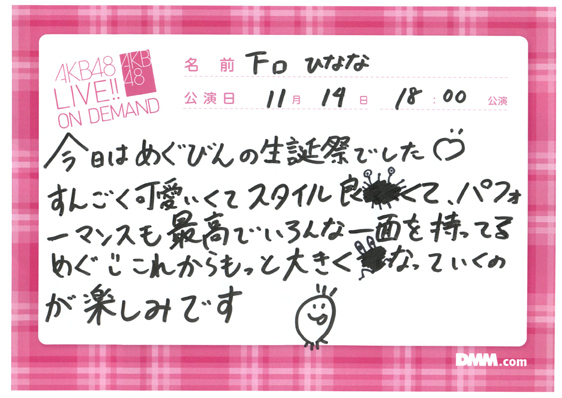 AKB48
LIVE!!
ON DEMAND
AKB
48
名前 下口ひなな
公演日 11月14日 18:00公演
今日はめぐびんの生誕祭でした
すんごく可愛いくてスタイル良くて、パフォ
ーマンスも最高でいろんな一面を持ってる
めぐ！これからもっと大きくなっていくの
が楽しみです
DMM.com